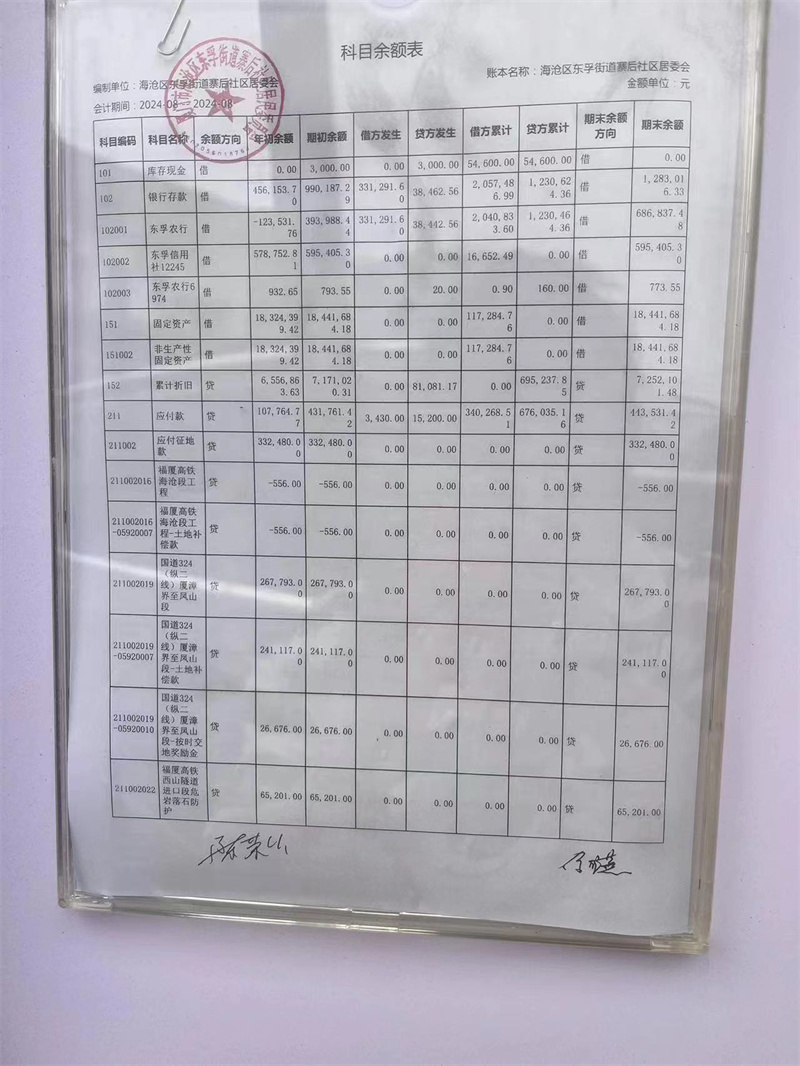 科目余额表
编制单位：海沧区东孚街道寨后社区居委会 账本名称：海沧区东孚街道寨后社区居委会
会计期间：2024-08—2024-08 金额单位：元
科目编码 科目名称 余额方向 年初余额 期初余额 借方发生 贷方发生 借方累计 贷方累计 期末余额方向 期末余额
101 库存现金 借 0.00 3,000.00 0.00 3,000.00 54,600.00 54,600.00 借 0.00
102 银行存款 借 456,153.70 990,187.29 331,291.60 38,462.56 2,057,486.99 1,230,624.36 借 1,283,016.33
102001 东孚农行 借 -123,531.76 393,988.44 331,291.60 38,442.56 2,040,833.60 1,230,464.36 借 686,837.48
102002 东孚信用社12245 借 578,752.81 595,405.30 0.00 0.00 16,652.49 0.00 借 595,405.30
102003 东孚农行6974 借 932.65 793.55 0.00 20.00 0.90 160.00 借 773.55
151 固定资产 借 18,324,399.42 18,441,684.18 0.00 0.00 117,284.76 0.00 借 18,441,684.18
151002 非生产性固定资产 借 18,324,399.42 18,441,684.18 0.00 0.00 117,284.76 0.00 借 18,441,684.18
152 累计折旧 贷 6,556,863.63 7,171,020.31 0.00 81,081.17 0.00 695,237.85 贷 7,252,101.48
211 应付款 贷 107,764.77 431,761.42 3,430.00 15,200.00 340,268.51 676,035.16 贷 443,531.42
211002 应付征地款 贷 332,480.00 332,480.00 0.00 0.00 0.00 0.00 贷 332,480.00
211002016 福厦高铁海沧段工程 贷 -556.00 -556.00 0.00 0.00 0.00 0.00 贷 -556.00
211002016-05920007 福厦高铁海沧段工程-土地补偿款 贷 -556.00 -556.00 0.00 0.00 0.00 0.00 贷 -556.00
211002019 国道324（纵二线）厦漳界至凤山段 贷 267,793.00 267,793.00 0.00 0.00 0.00 0.00 贷 267,793.00
211002019-05920007 国道324（纵二线）厦漳界至凤山段-土地补偿款 贷 241,117.00 241,117.00 0.00 0.00 0.00 0.00 贷 241,117.00
211002019-05920010 国道324（纵二线）厦漳界至凤山段-按时交地奖励金 贷 26,676.00 26,676.00 0.00 0.00 0.00 0.00 贷 26,676.00
211002022 福厦高铁西山隧道进口段危岩落石防护 贷 65,201.00 65,201.00 0.00 0.00 0.00 0.00 贷 65,201.00